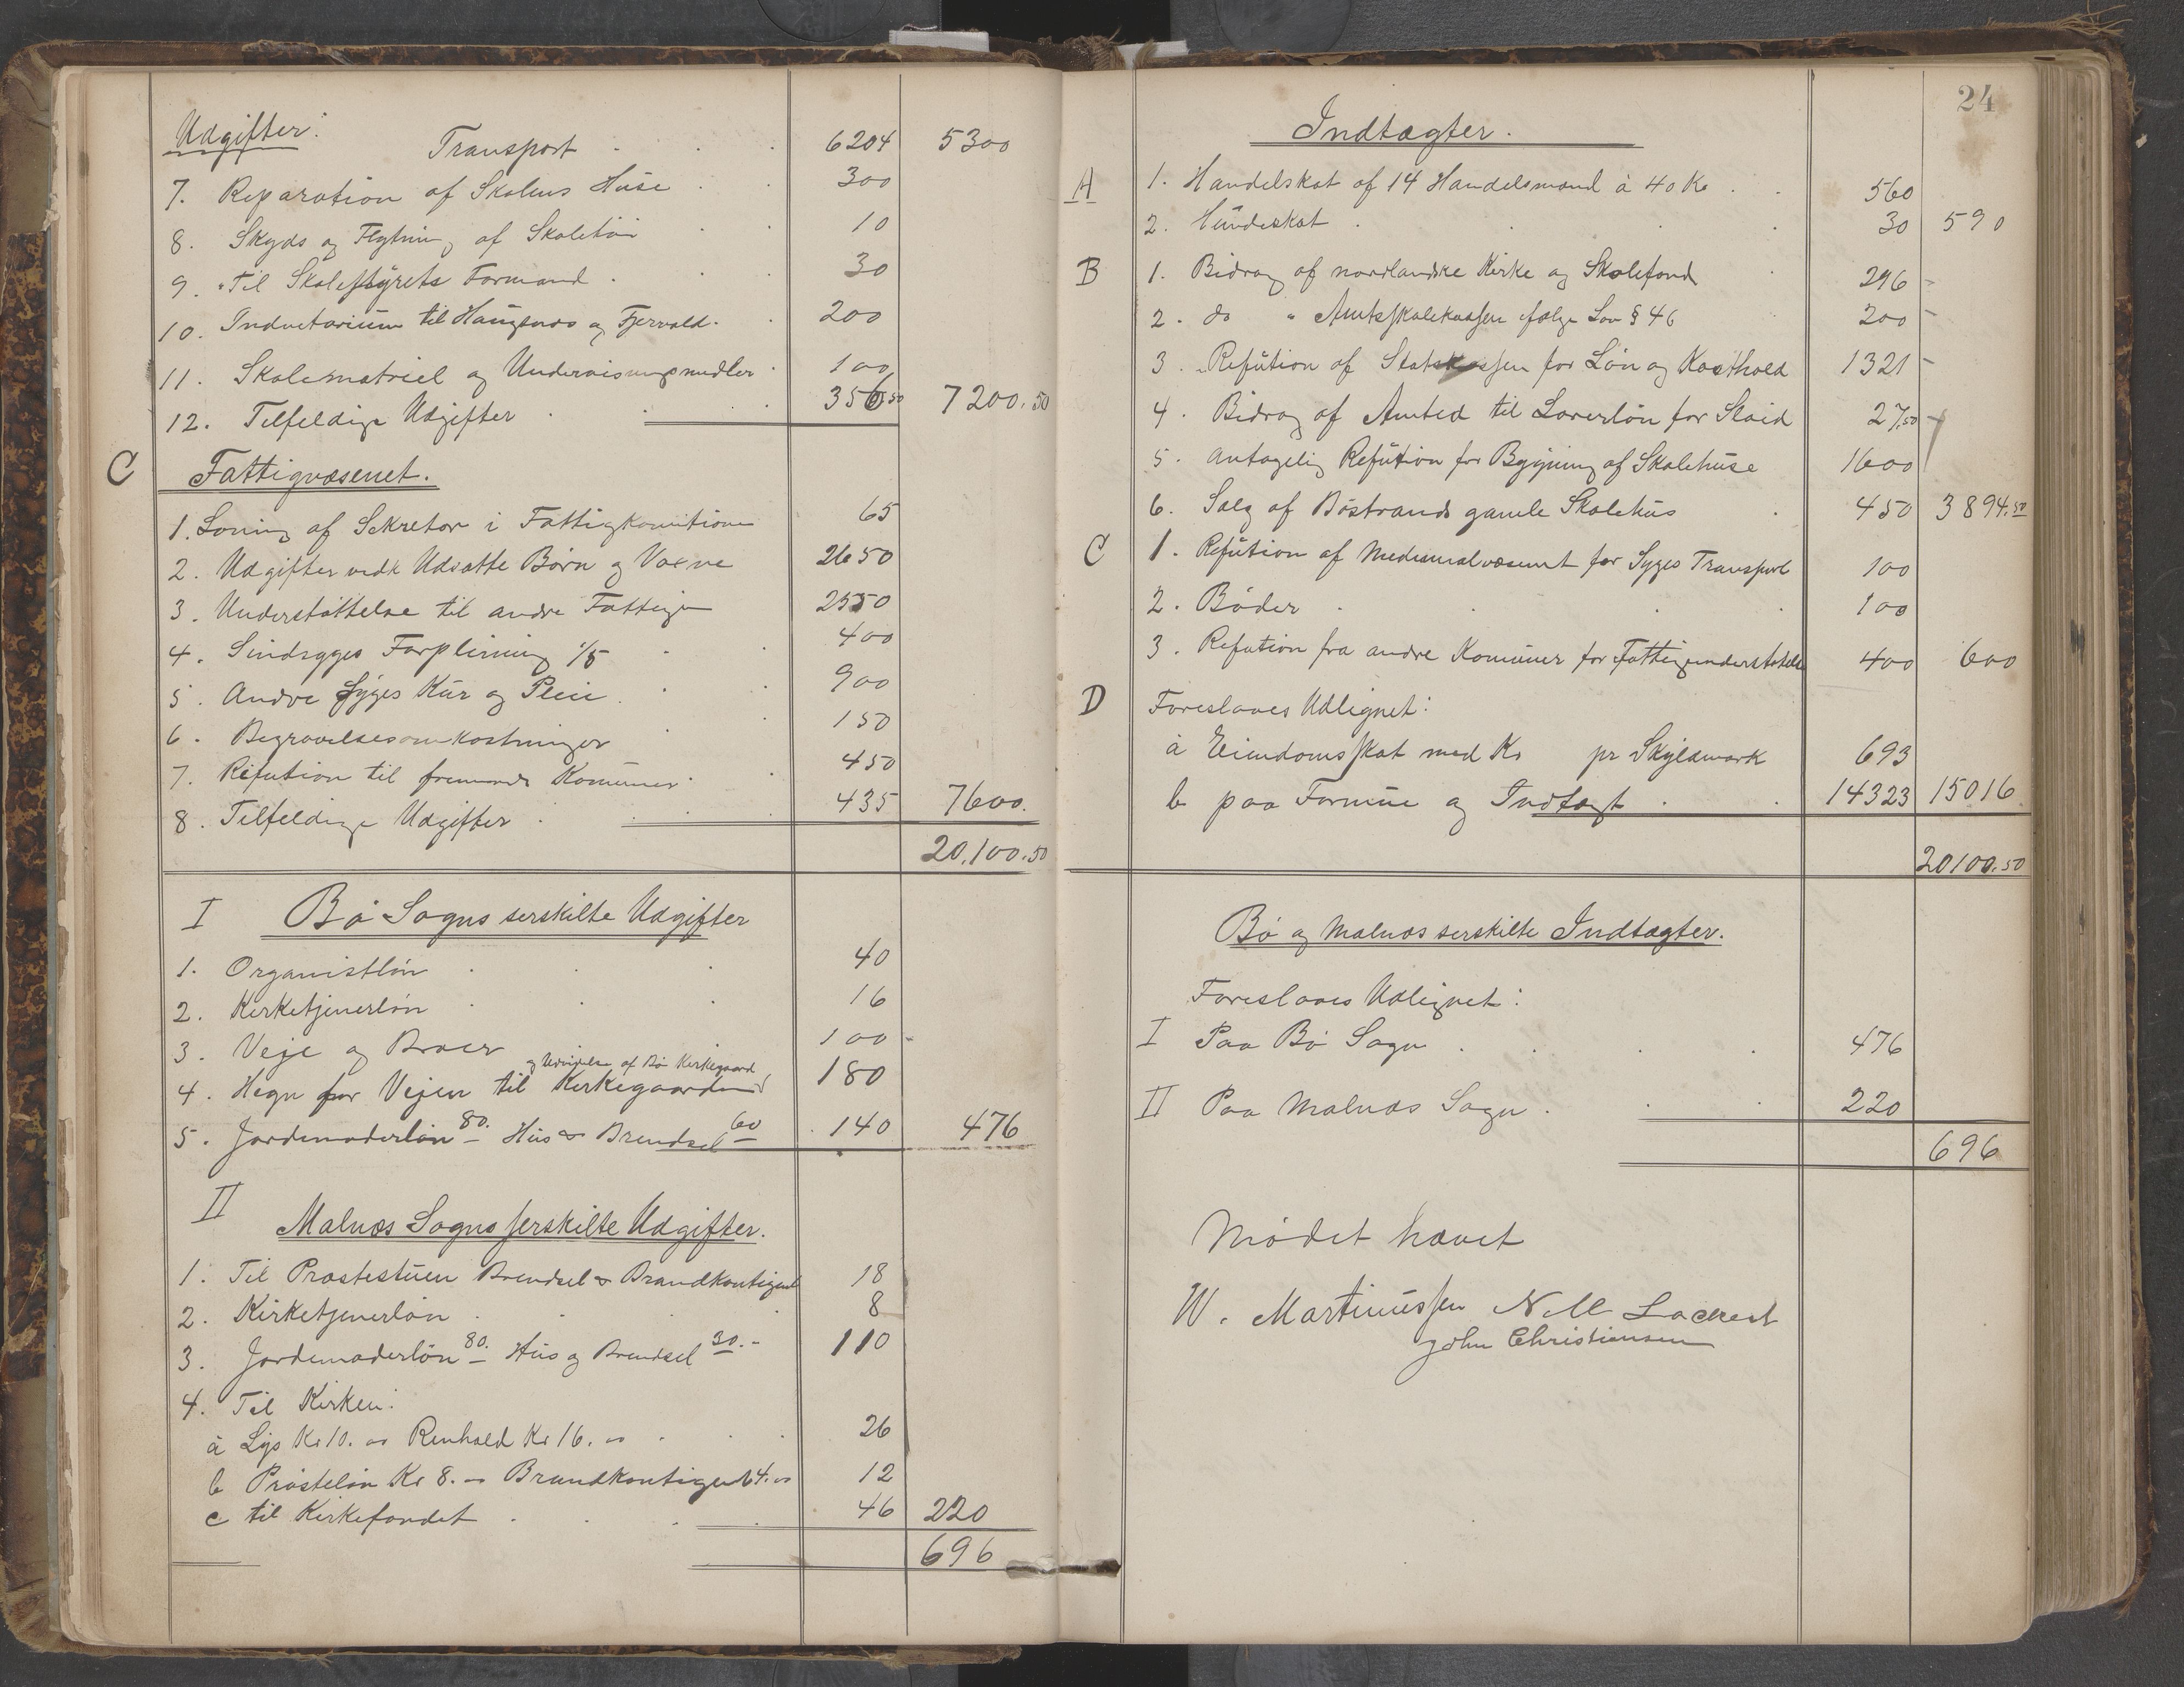 Udgifter:
Transport 6204 5300
7. Reparation af Skolens Huse 300
8. Skyds og Flytning af Skoletøi 10
9. Til Skolestyrets Formand 30
10. Inventarium til Haugsnes og Fjervold. 200
11. Skolematriel og Undervisningsmidler 100
12. Tilfeldige Udgifter 356.50 7200.50
C Fattigvæsenet.
1. Løning af Sekretær i Fattigkomitionen 65
2. Udgifter vedk Udsatte Børn og Voxne 2650
3. Understøttelse til andre Fattige 2550
4. Sindsyges Forpleining 1/5 400
5. Andre Syges Kur og Pleie 900
6. Begravelsesomkostninger 150
7. Refution til fremmede Komuner 450
8. Tilfeldige Udgifter 435 7600.
20,100.50
I Bø Sogns serskilte Udgifter
1. Organistløn 40
2. Kirketjenerløn 16
3. Veje og Broer 100 -
og Udvidelse af Bø Kirkegaard
4. Hegn for Vejen til Kirkegaarden 180
5. Jordemoderløn 80. Hus & Brendsel 60 140 476
II
Malnes Sogns serskilte Udgifter.
1. Til Præstestuen Brendsel & Brandkontigent 18
2. Kirketjenerløn 8
3. Jordemoderløn 80. Hus og Brendsel 30.- 110
4. Til Kirken:
a Lys Kr 10. oo Renhold Kr 16. oo 26
b Prøsteløn Kr 8. oo Brandkontigent 4. oo 12
c til Kirkefondet 46 220
696
24
Indtægter.
A 1. Handelskat af 14 Handelsmænd à 40 Kr 560
2. Hundeskat 30 590
B 1. Bidrag af nordlandske Kirke og Skolefond 296 -
2. do " Amtsskolekassen følge Lov § 46 200 -
3. Refution af Statskassen for Løn og Kosthold 1321 -
4. Bidrag af Amted til Lærerløn for Sløid 27.50
5. antagelig Refution for Bygning af Skolehuse 1600
6. Salg af Bøstrands gamle Skolehus 450 3894.50
C 1. Refution af Medicinalvæsenet for Syges Transport 100
2. Bøder 100
3. Refution fra andre Komuner for Fattigunderstøttelse 400 600
D Foreslaaes Udlignet:
a Eiendomsskat med Kr pr Skyldmark 693
b paa Formue og Indtægt 14323 15016
20100.50
Bø og Malnes serskilte Indtægter.
Foreslaaes Udlignet:
I Paa Bø Sogn 476
II Paa Malnes Sogn 220
696
Mødet hævet
W. Martinussen N M Lockert
John Christiansen